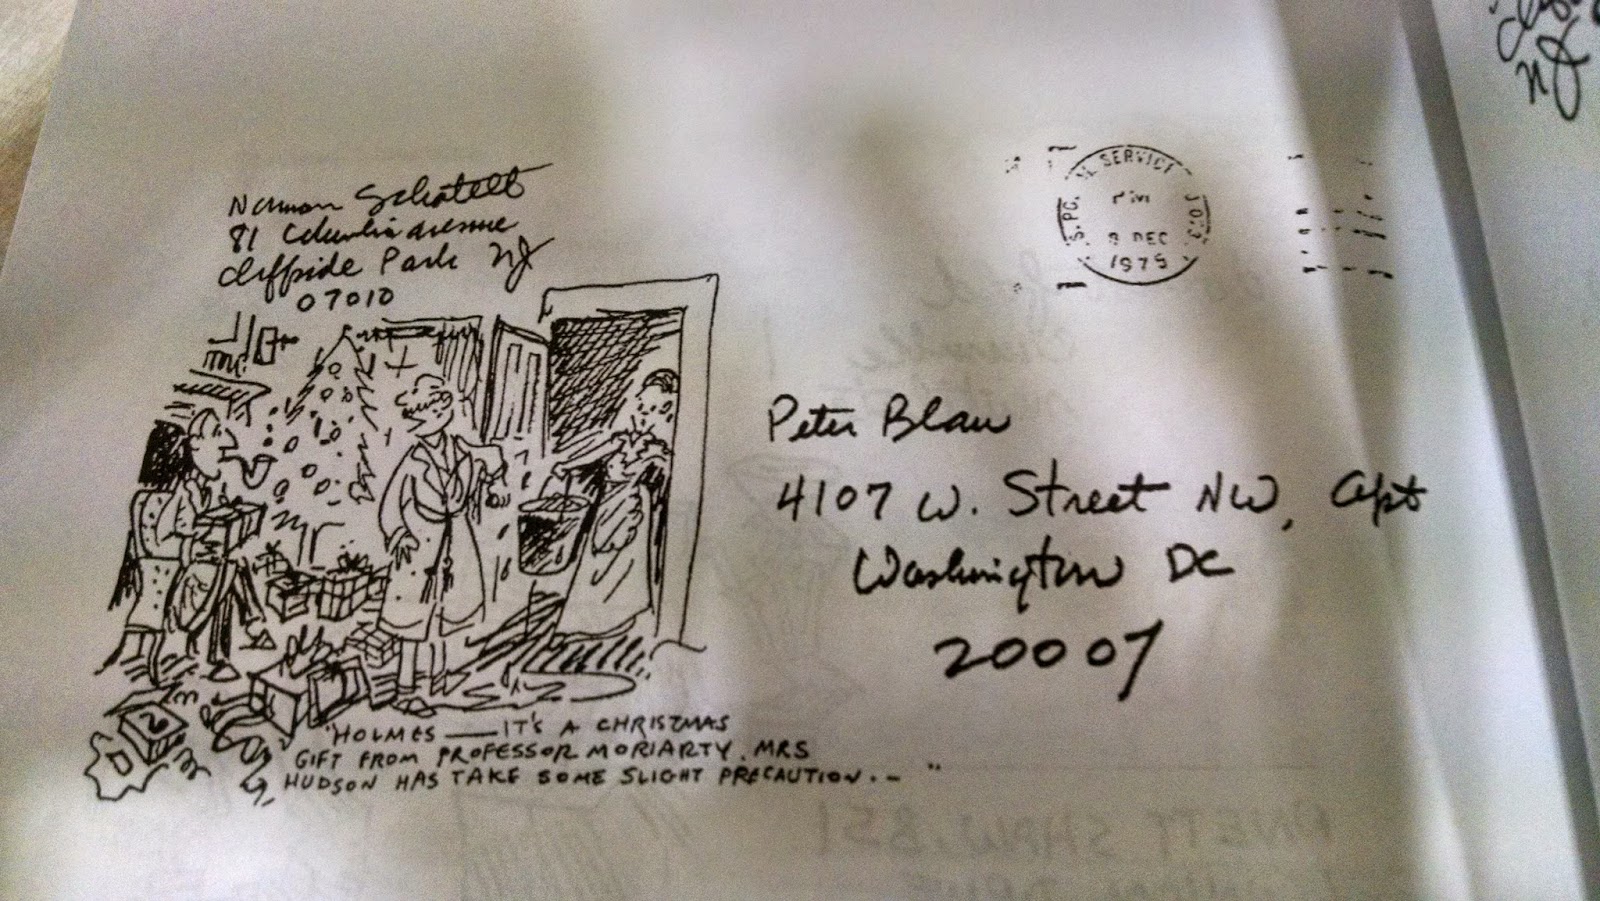 Norman Schatell
81 Columbia avenue
Cliffside Park NJ
07010
SERVICE
PM
9 DEC
1975
Peter Blau
4107 W. Street NW, Apt
Washington DC
20007
"HOLMES — IT'S A CHRISTMAS
GIFT FROM PROFESSOR MORIARTY. MRS
HUDSON HAS TAKE SOME SLIGHT PRECAUTION. – "
NJ